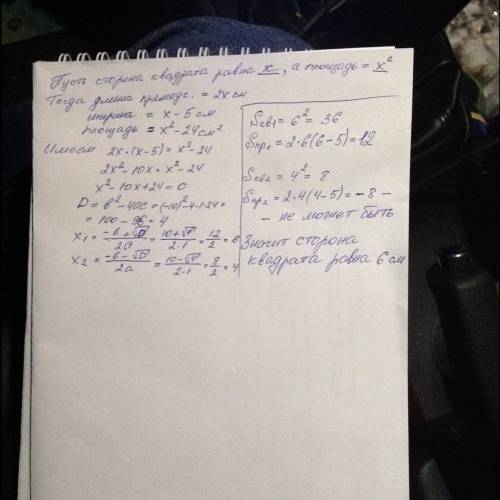 Пусть сторона квадрата равна x, а площадь = x²
Тогда длина прямоуг. = 2x см
ширина = x - 5 см
площадь = x² - 24 см²
Имеем 2x·(x-5) = x² - 24
2x² - 10x = x² - 24
x² - 10x + 24 = 0
D = b² - 4ac = (-10)² - 4·1·24 =
= 100 - 96 = 4
x₁ = (-b+√D)/2a = (10+√4)/2·1 = 12/2 = 6
x₂ = (-b-√D)/2a = (10-√4)/2·1 = 8/2 = 4
Sкв₁ = 6² = 36
Sпр₁ = 2·6(6-5) = 12
Sкв₂ = 4² = 8
Sпр₂ = 2·4(4-5) = -8 -
- не может быть
Значит сторона
квадрата равна 6 см